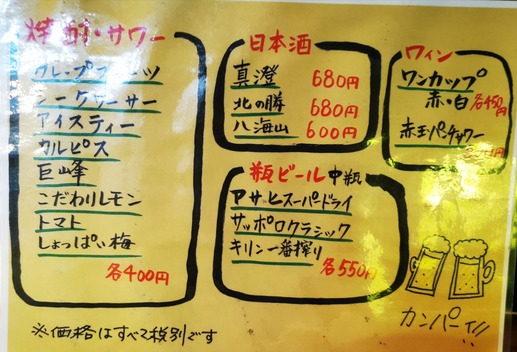 焼酎・サワー
グレープフルーツ
シークワーサー
アイスティー
カルピス
巨峰
こだわりレモン
トマト
しょっぱい梅
各400円
日本酒
真澄 680円
北の勝 680円
八海山 600円
ワイン
ワンカップ
赤・白 各450円
赤玉パンチサワー
瓶ビール 中瓶
アサヒスーパードライ
サッポロクラシック
キリン一番搾り
各550円
カンパーイ!!
※価格はすべて税別です